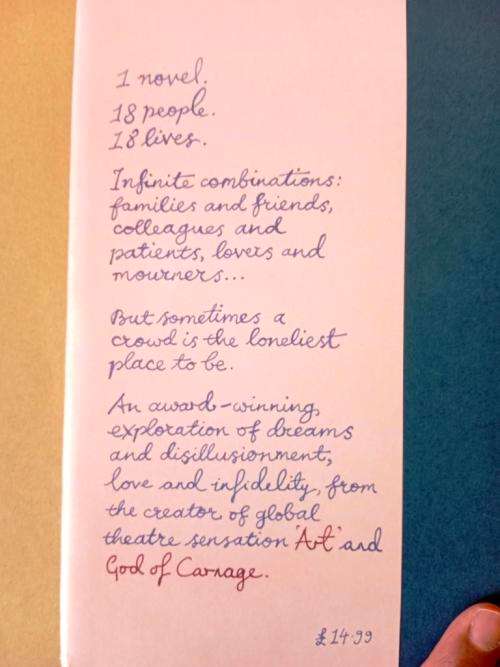 1 novel.
18 people.
18 lives.
Infinite combinations:
families and friends,
colleagues and
patients, lovers and
mourners...
But sometimes a
crowd is the loneliest
place to be.
An award-winning
exploration of dreams
and disillusionment,
love and infidelity, from
the creator of global
theatre sensation 'Art' and
God of Carnage.
£14.99